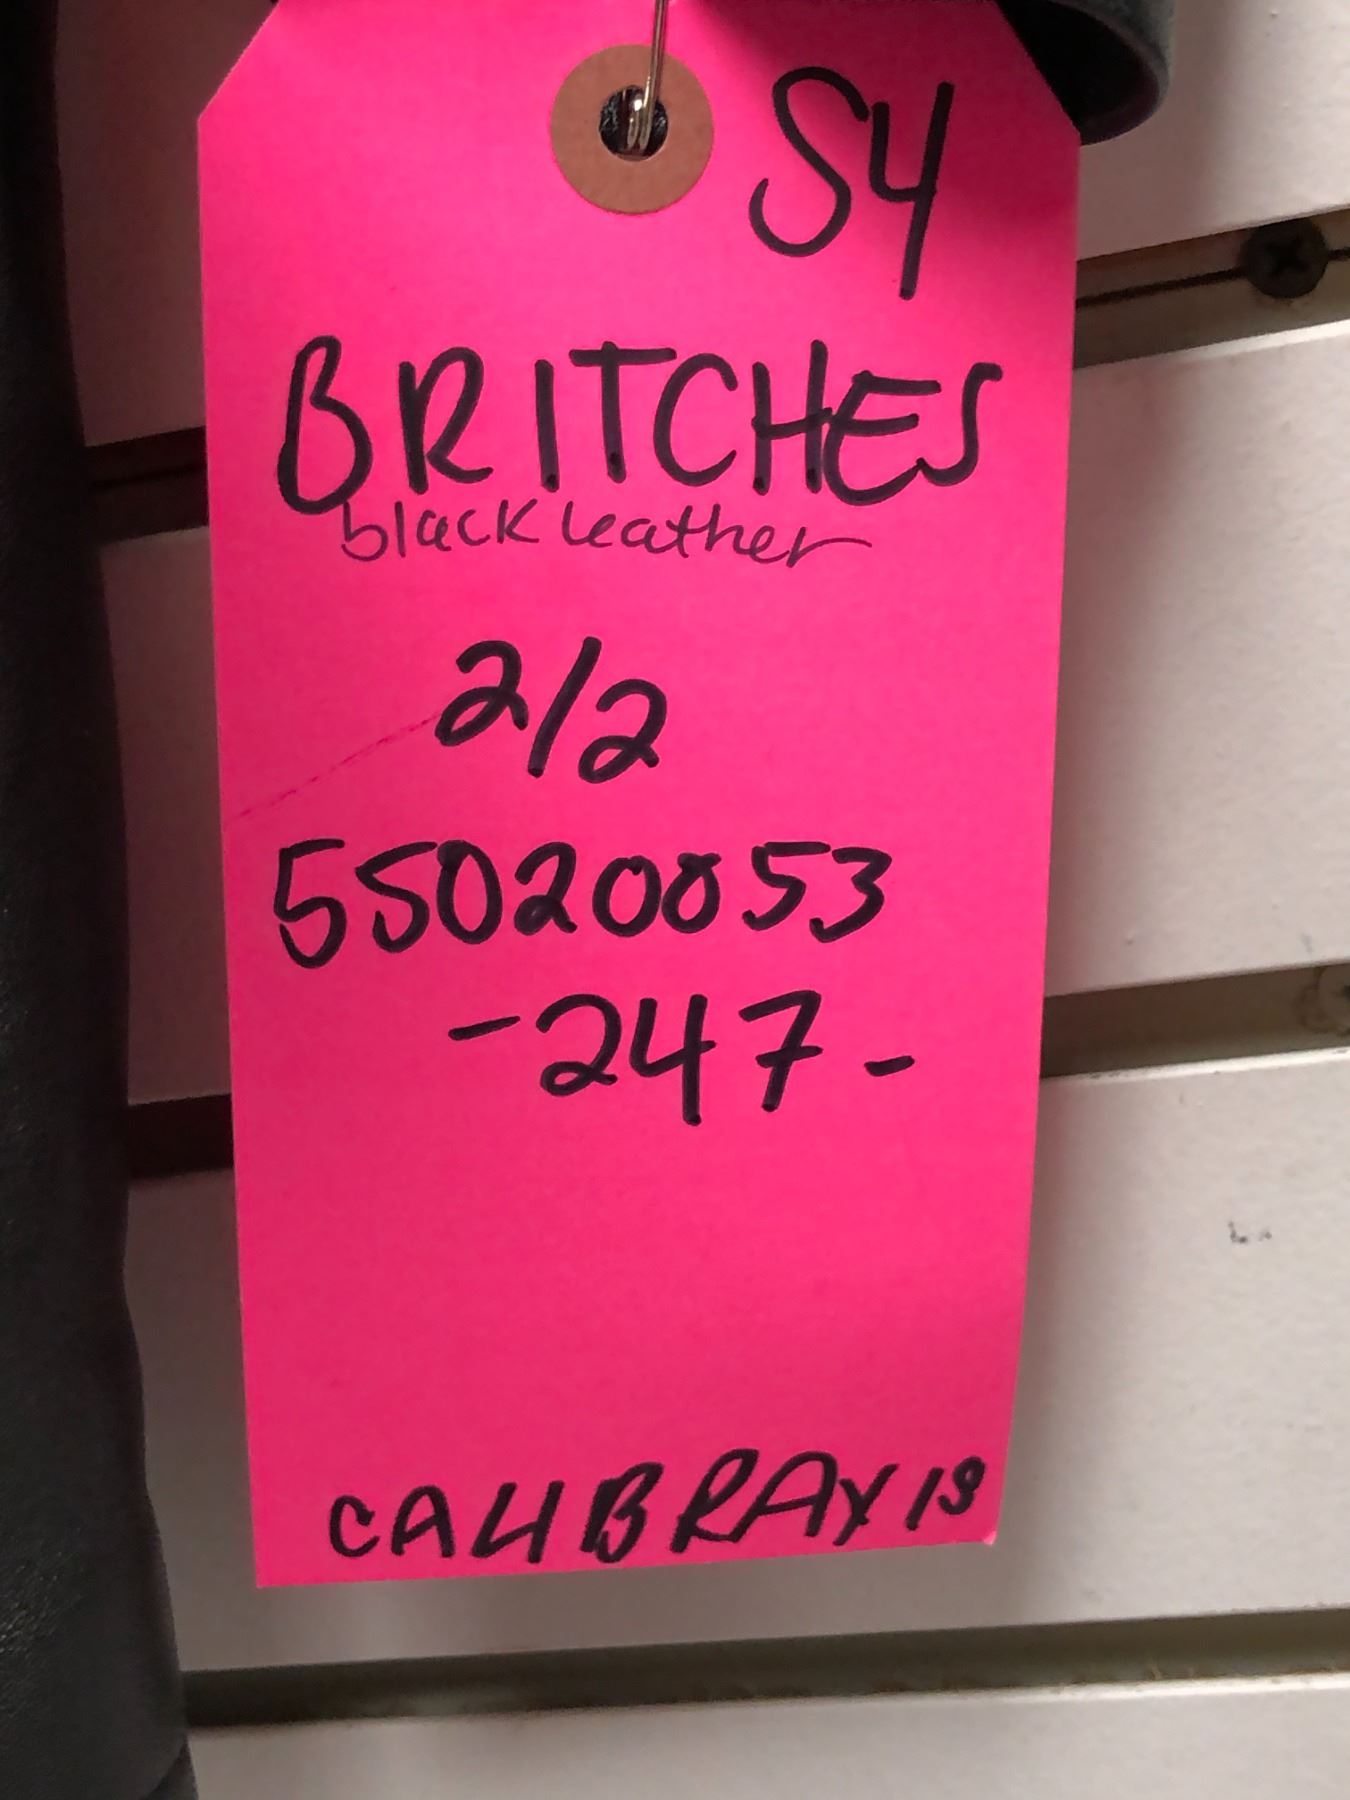 S4
BRITCHES
black leather
2/2
55020053
-247-
CALIBRAX13